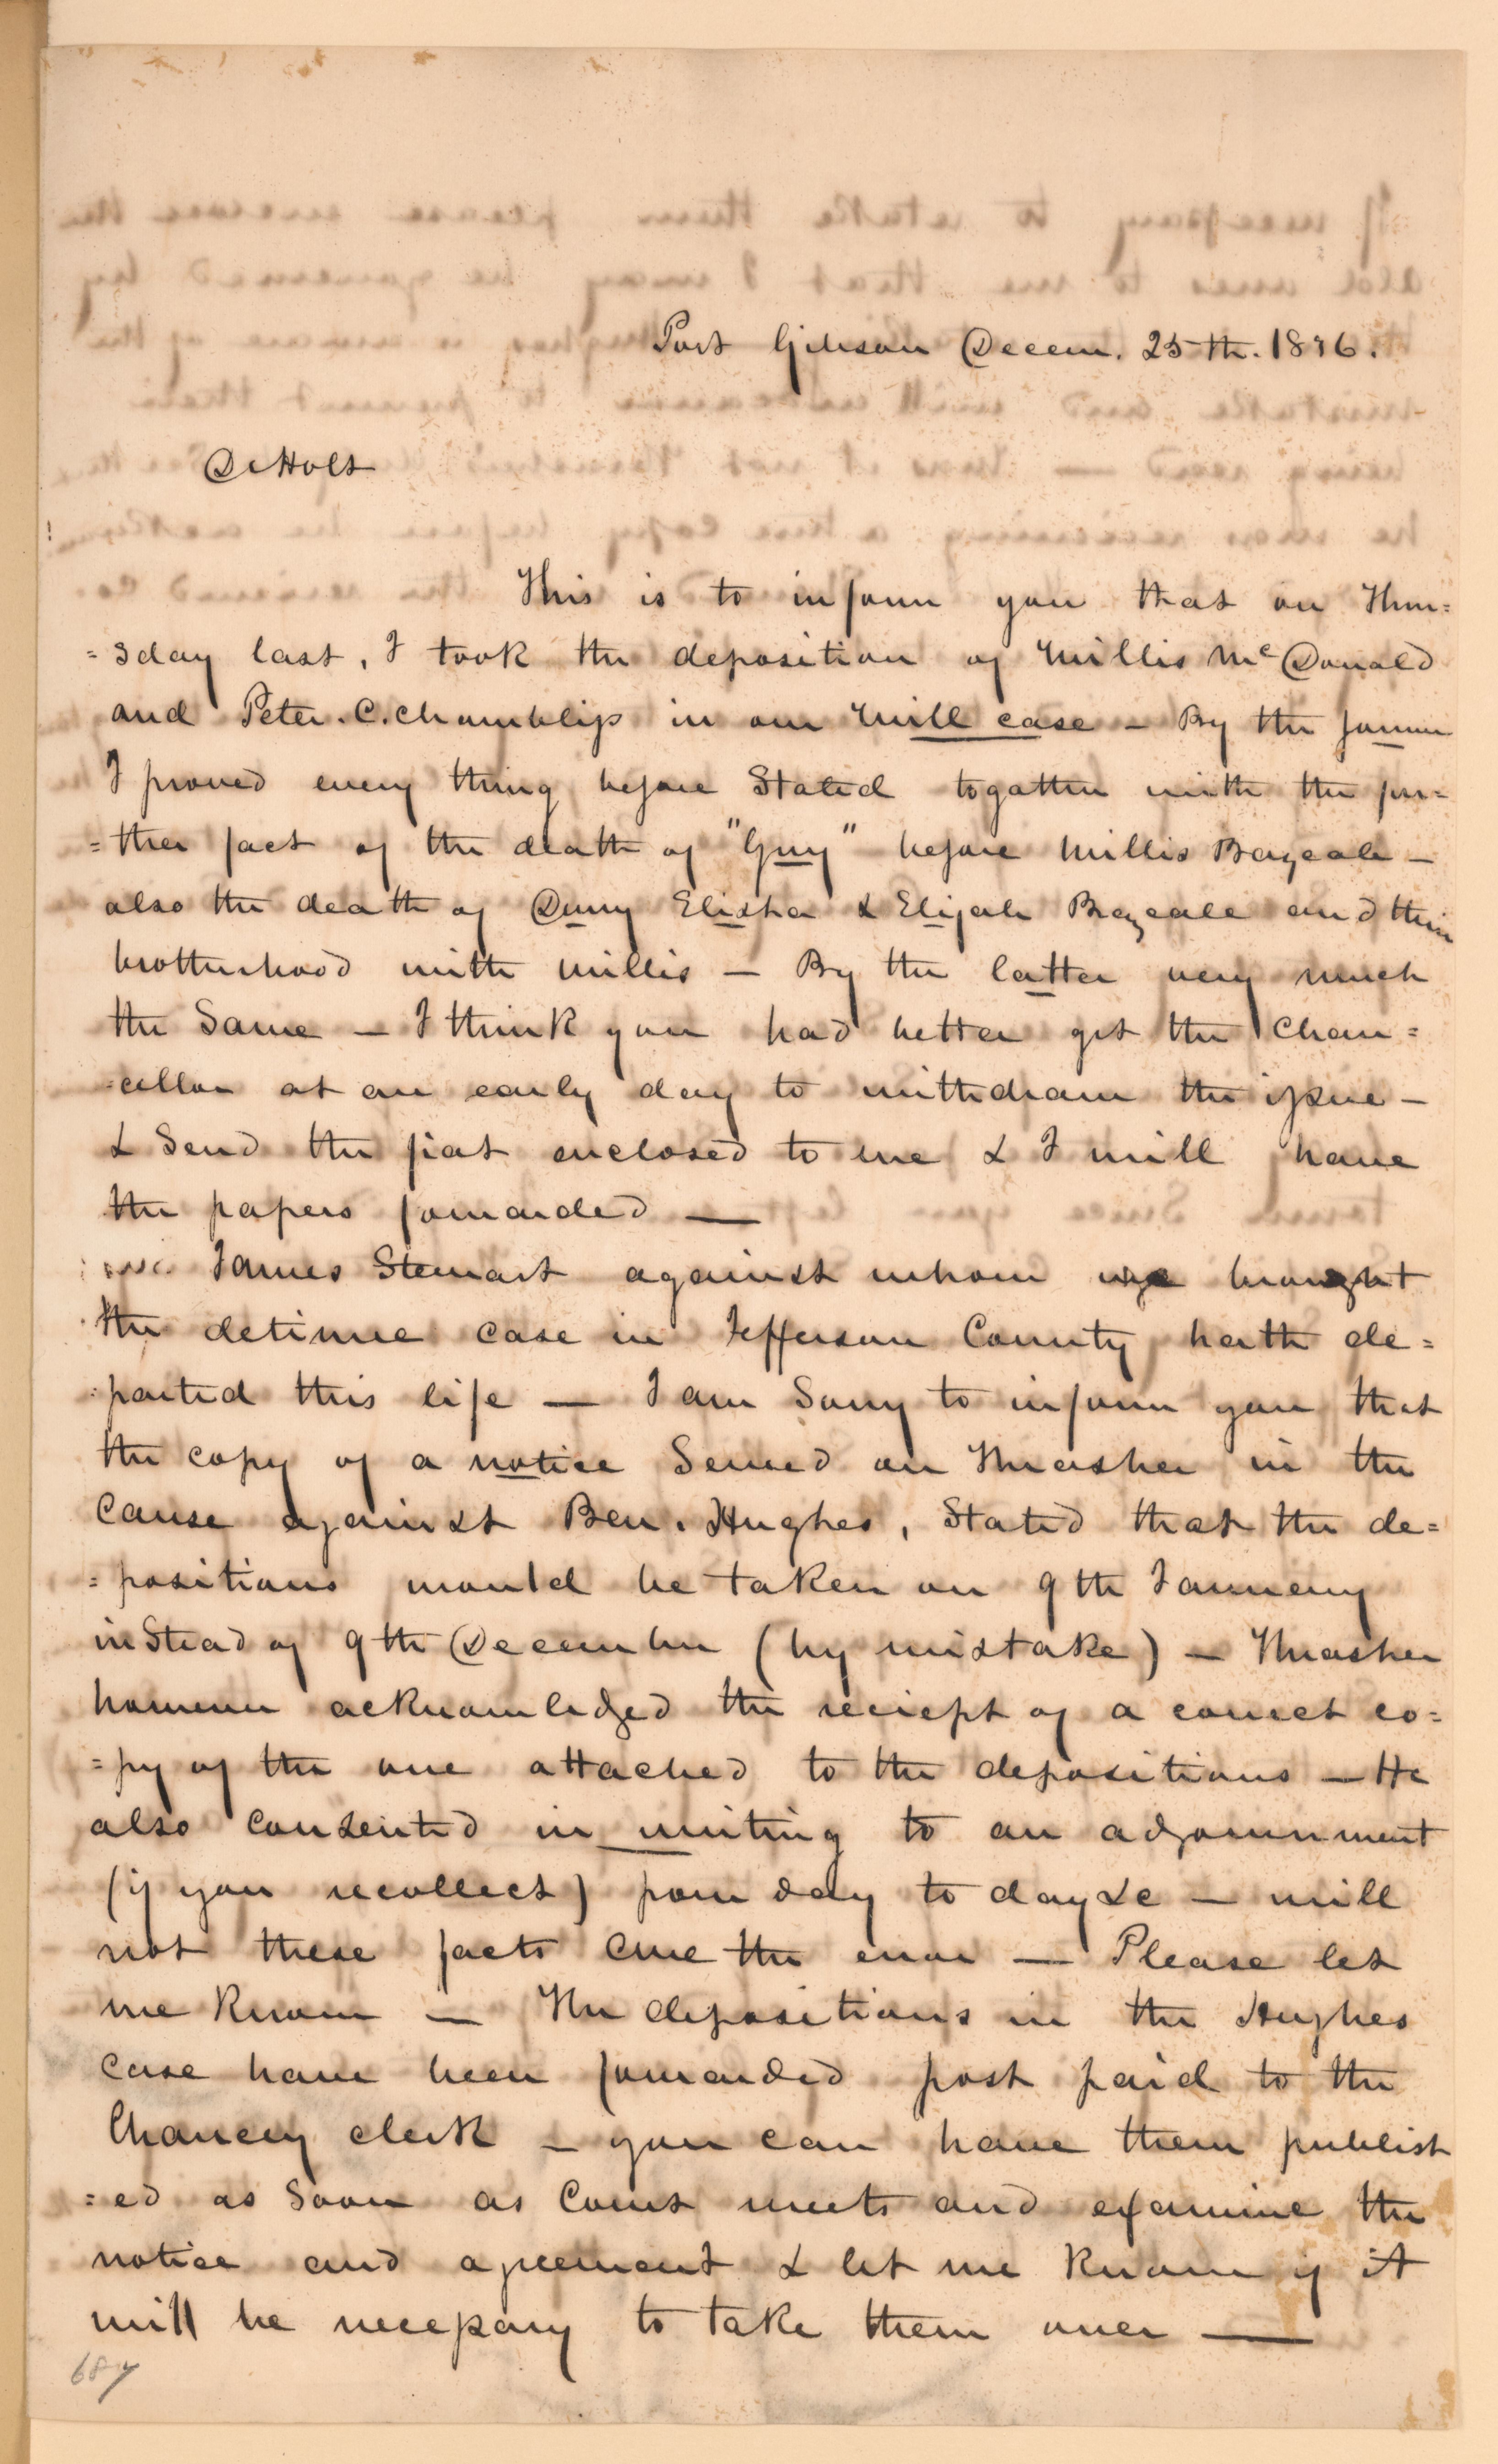 Port Gibson Decem. 25th. 1846.
Dr Holt
This is to inform you that on Thur=
=sday last, I took the deposition of Willis McDonald
and Peter. C. Chambliss in our Will case — By the former
I proved every thing before Stated togather with the fur=
=ther fact of the death of "Guy" before Willis Brazeale —
also the death of Drury Elisha & Elijah Brazeale and their
brotherhood with Willis — By the latter very much
the Same — I think you had better get the Chan=
=cellor at an early day to withdraw the issue —
& Send the fiat enclosed to me & I will have
the papers forwarded —
James Stewart against whom we brought
the detinue case in Jefferson County hath de=
=parted this life — I am Sorry to inform you that
the copy of a notice Served on Thrasher in the
Cause against Ben. Hughes, Stated that the de=
=positions would be taken on 9th January
instead of 9th December (by mistake) — Thrasher
however acknowledged the reciept of a correct co=
=py of the one attached to the depositions — He
also consented in writing to an adjournment
(if you recollect) from day to day &c — will
not these facts cure the error — Please let
me know — The depositions in the Hughes
case have been forwarded post paid to the
Chancery clerk — you can have them publish
=ed as Soon as Court meets and examine the
notice and agreement & let me know if it
will be necessary to take them over —
687